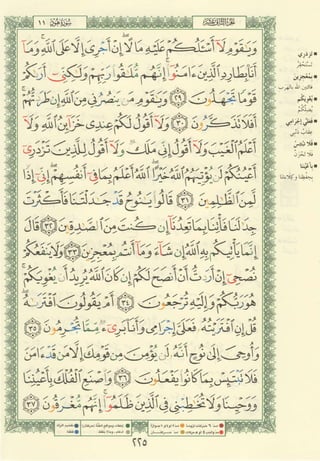 الجزء الثاني عشر
سورة هود ١١
وَيَـٰقَوْمِ لَآ أَسْـَٔلُكُمْ عَلَيْهِ مَالًا ۖ إِنْ أَجْرِىَ إِلَّا عَلَى ٱللَّهِ ۚ وَمَآ
أَنَا۠ بِطَارِدِ ٱلَّذِينَ ءَامَنُوٓا۟ ۚ إِنَّهُم مُّلَـٰقُوا۟ رَبِّهِمْ وَلَـٰكِنِّىٓ أَرَىٰكُمْ
قَوْمًا تَجْهَلُونَ ٢٩ وَيَـٰقَوْمِ مَن يَنصُرُنِى مِنَ ٱللَّهِ إِن طَرَدتُّهُمْ ۚ
أَفَلَا تَذَكَّرُونَ ٣٠ وَلَآ أَقُولُ لَكُمْ عِندِى خَزَآئِنُ ٱللَّهِ وَلَآ
أَعْلَمُ ٱلْغَيْبَ وَلَآ أَقُولُ إِنِّى مَلَكٌ وَلَآ أَقُولُ لِلَّذِينَ تَزْدَرِىٓ
أَعْيُنُكُمْ لَن يُؤْتِيَهُمُ ٱللَّهُ خَيْرًا ۖ ٱللَّهُ أَعْلَمُ بِمَا فِىٓ أَنفُسِهِمْ ۖ إِنِّىٓ إِذًا
لَّمِنَ ٱلظَّـٰلِمِينَ ٣١ قَالُوا۟ يَـٰنُوحُ قَدْ جَـٰدَلْتَنَا فَأَكْثَرْتَ
جِدَٰلَنَا فَأْتِنَا بِمَا تَعِدُنَآ إِن كُنتَ مِنَ ٱلصَّـٰدِقِينَ ٣٢ قَالَ
إِنَّمَا يَأْتِيكُم بِهِ ٱللَّهُ إِن شَآءَ وَمَآ أَنتُم بِمُعْجِزِينَ ٣٣ وَلَا يَنفَعُكُمْ
نُصْحِىٓ إِنْ أَرَدتُّ أَنْ أَنصَحَ لَكُمْ إِن كَانَ ٱللَّهُ يُرِيدُ أَن يُغْوِيَكُمْ ۚ
هُوَ رَبُّكُمْ وَإِلَيْهِ تُرْجَعُونَ ٣٤ أَمْ يَقُولُونَ ٱفْتَرَىٰهُ ۖ
قُلْ إِنِ ٱفْتَرَيْتُهُۥ فَعَلَىَّ إِجْرَامِى وَأَنَا۠ بَرِىٓءٌ مِّمَّا تُجْرِمُونَ ٣٥
وَأُوحِىَ إِلَىٰ نُوحٍ أَنَّهُۥ لَن يُؤْمِنَ مِن قَوْمِكَ إِلَّا مَن قَدْ ءَامَنَ
فَلَا تَبْتَئِسْ بِمَا كَانُوا۟ يَفْعَلُونَ ٣٦ وَٱصْنَعِ ٱلْفُلْكَ بِأَعْيُنِنَا
وَوَحْيِنَا وَلَا تُخَـٰطِبْنِى فِى ٱلَّذِينَ ظَلَمُوٓا۟ ۚ إِنَّهُم مُّغْرَقُونَ ٣٧
تزدري
تستحقر
بمعجزين
فائتين الله بالهرب
يغويكم
يضلكم
فعلي إجرامي
عقاب ذنبي
فلا تبتئس
فلا تحزن
بأعيننا
بحفظنا وكلاءتنا
٢٢٥